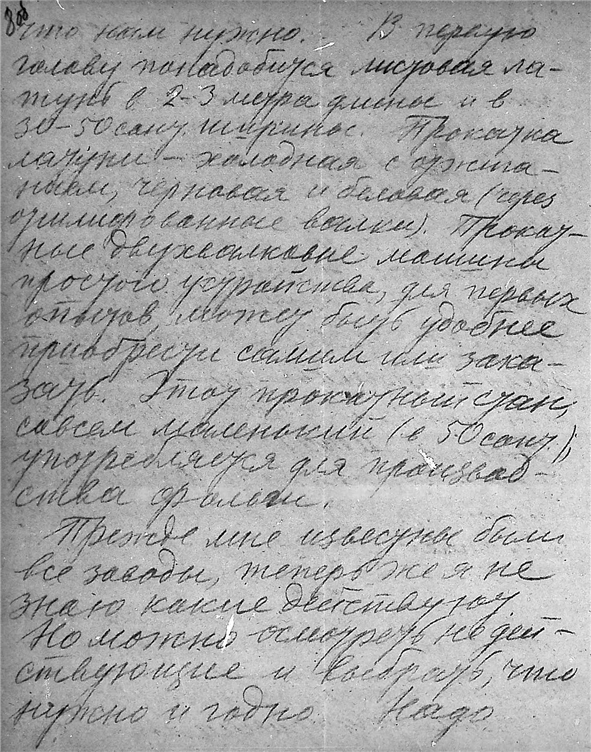 что нам нужно. В первую
голову понадобится листовая ла-
тунь в 2-3 метра длины и в
30-50 сант. ширины. Прокатка
латуни – холодная с отжига-
нием, черновая и беловая (через
шлифованные валки). Прокат-
ные двухвалковые машины
простого устройства, для первых
опытов, может быть удобнее
приобрести самим или зака-
зать. Этот прокатный стан,
совсем маленький (в 50 сант.),
употребляется для производ-
ства фольги.
Прежде мне известны были
все заводы, теперь же я не
знаю какие действуют.
Но можно осмотреть не дей-
ствующие и выбрать, что
нужно и годно. Надо